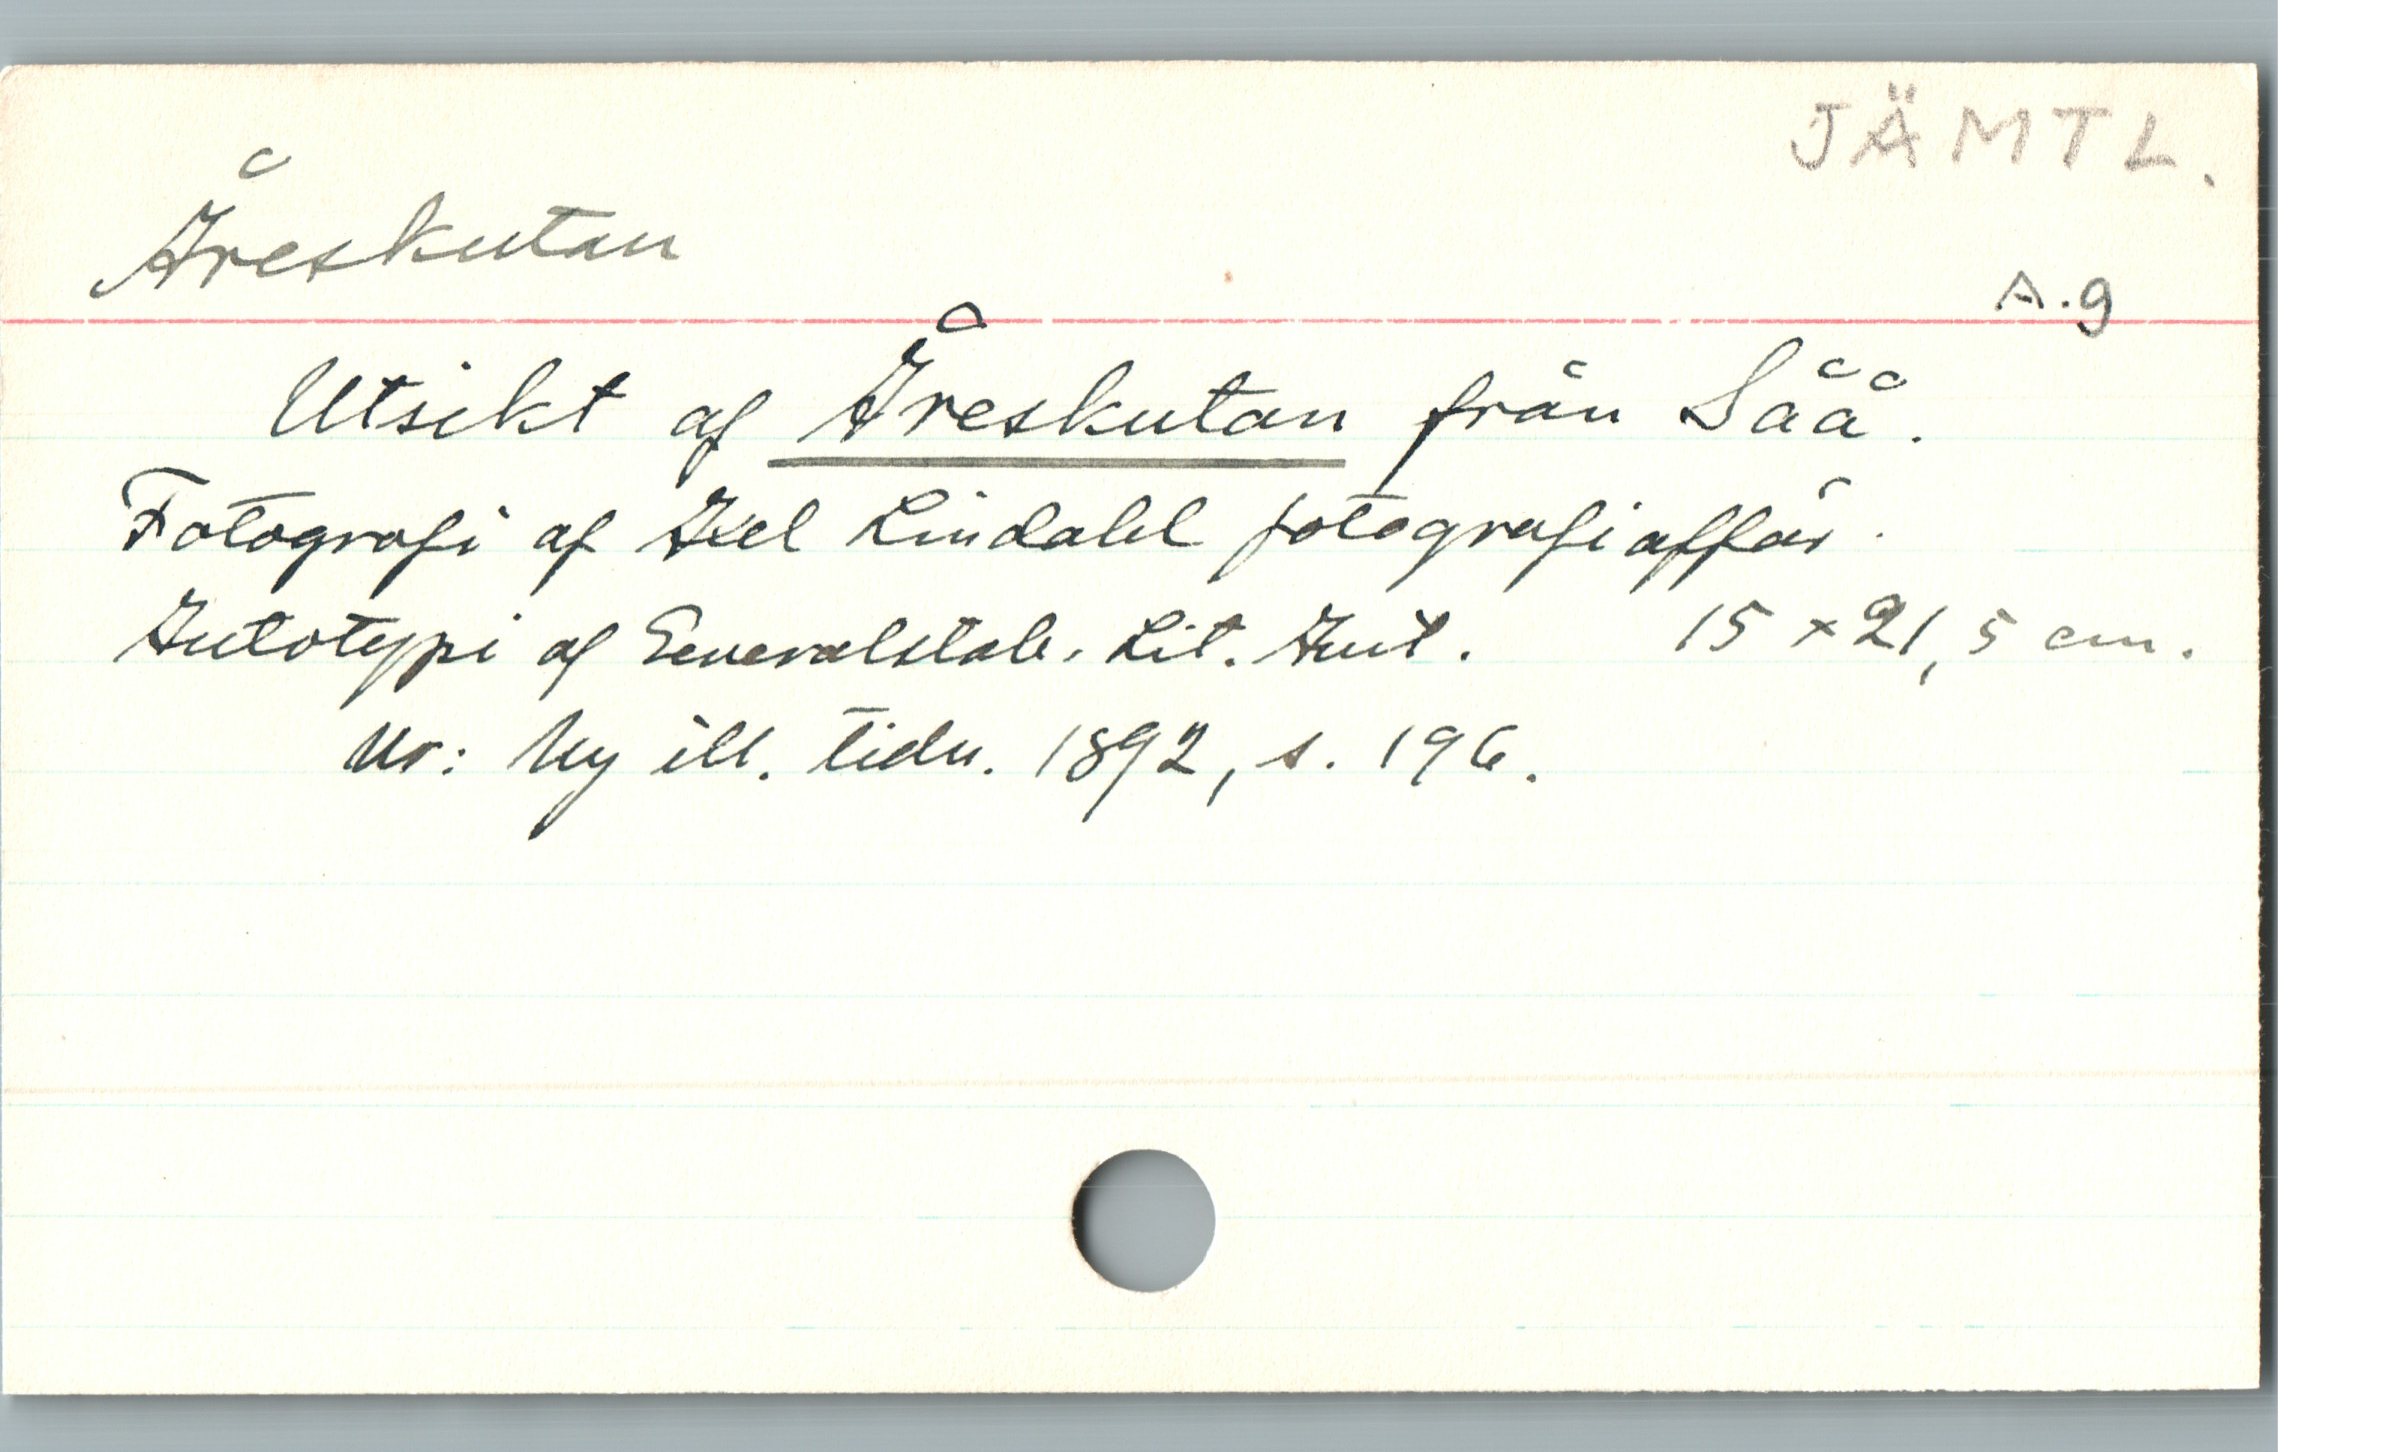 JÄMTL.
Åreskutan
A.9
Utsikt af Åreskutan från Såå.
Fotografi af Axel Lindahl fotografiaffär.
Autotypi af Generalstab. Lit. Anst. 15 x 21,5 cm.
Ur: Ny ill. tidn. 1892, s. 196.